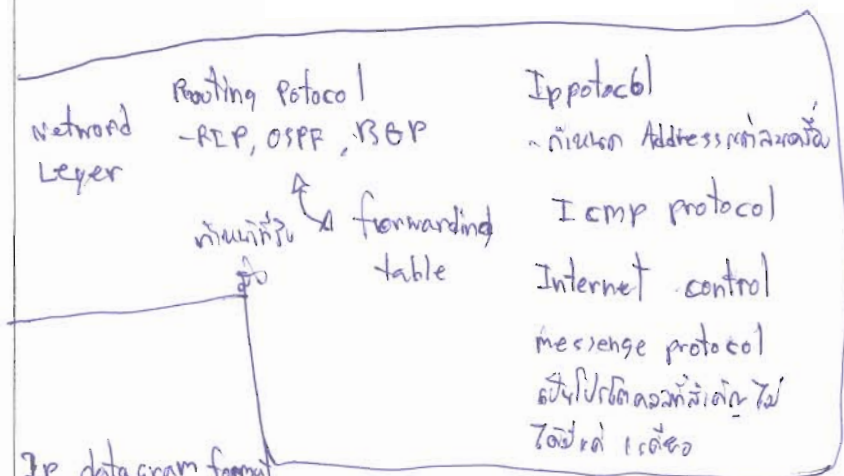 Network
Leyer
Routing Potocol
-RIP, OSPF, BGP
ทำหน้าที่รับ
ส่ง
forwarding
table
Ip potocol
- กำหนด Address แต่ละเครื่อง
Icmp protocol
Internet control
messenge protocol
เป็นโปรโตคอลที่สำคัญ ไม่
ได้มีแค่
Ip datagram format